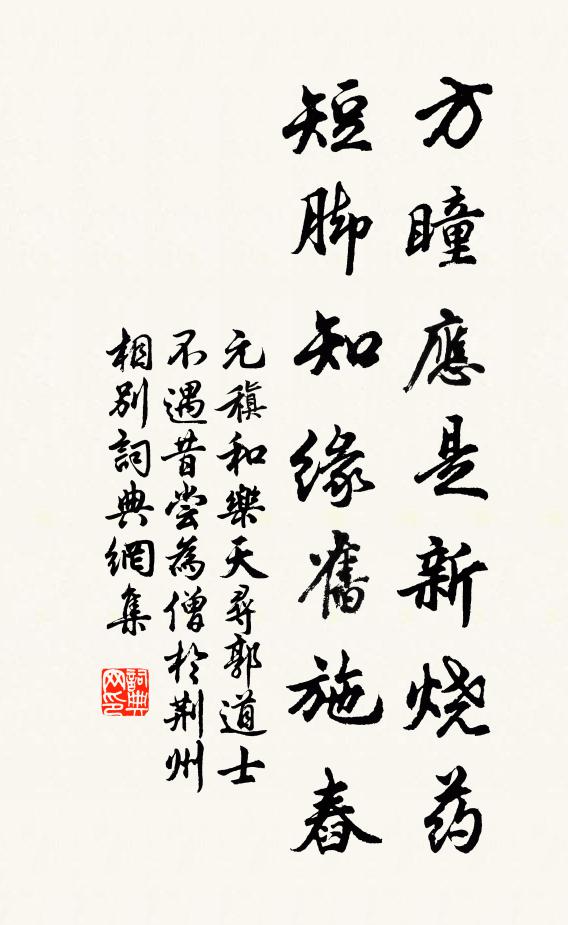 方瞳應是新烧药
短脚知緣舊施舂
元稹和樂天尋郭道士
不遇昔尝為僧於荆州
相别詞典網集
詞典网印